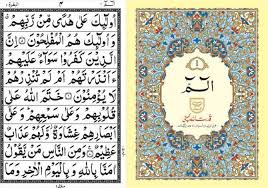 البقرة ٢
٣
الٓمّٓ ١
اُولٰٓئِكَ عَلٰى هُدًى مِّنْ رَّبِّهِمْ
وَاُولٰٓئِكَ هُمُ الْمُفْلِحُوْنَ اِنَّ
الَّذِيْنَ كَفَرُوْا سَوَآءٌ عَلَيْهِمْ
ءَاَنْذَرْتَهُمْ اَمْ لَمْ تُنْذِرْهُمْ
لَا يُؤْمِنُوْنَ خَتَمَ اللّٰهُ عَلٰى
قُلُوْبِهِمْ وَعَلٰى سَمْعِهِمْ وَعَلٰٓى
اَبْصَارِهِمْ غِشَاوَةٌ وَّلَهُمْ عَذَابٌ
عَظِيْمٌ وَمِنَ النَّاسِ مَنْ يَّقُوْلُ
اٰمَنَّا بِاللّٰهِ وَبِالْيَوْمِ الْاٰخِرِ وَمَا
منزل ١
١
الٓمّٓ